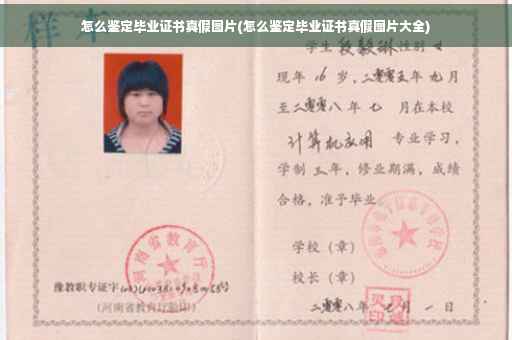 怎么鉴定毕业证书真假图片(怎么鉴定毕业证书真假图片大全)
样本
学生段毅琳性别女
现年16岁，二零零五年九月
至二零零八年七月在本校
计算机应用专业学习，
学制三年，修业期满，成绩
合格，准予毕业。
学校（章）
校长（章）
河南省教育厅
豫教职专证字
(河南省教育厅验印)
二零零八年七月一日